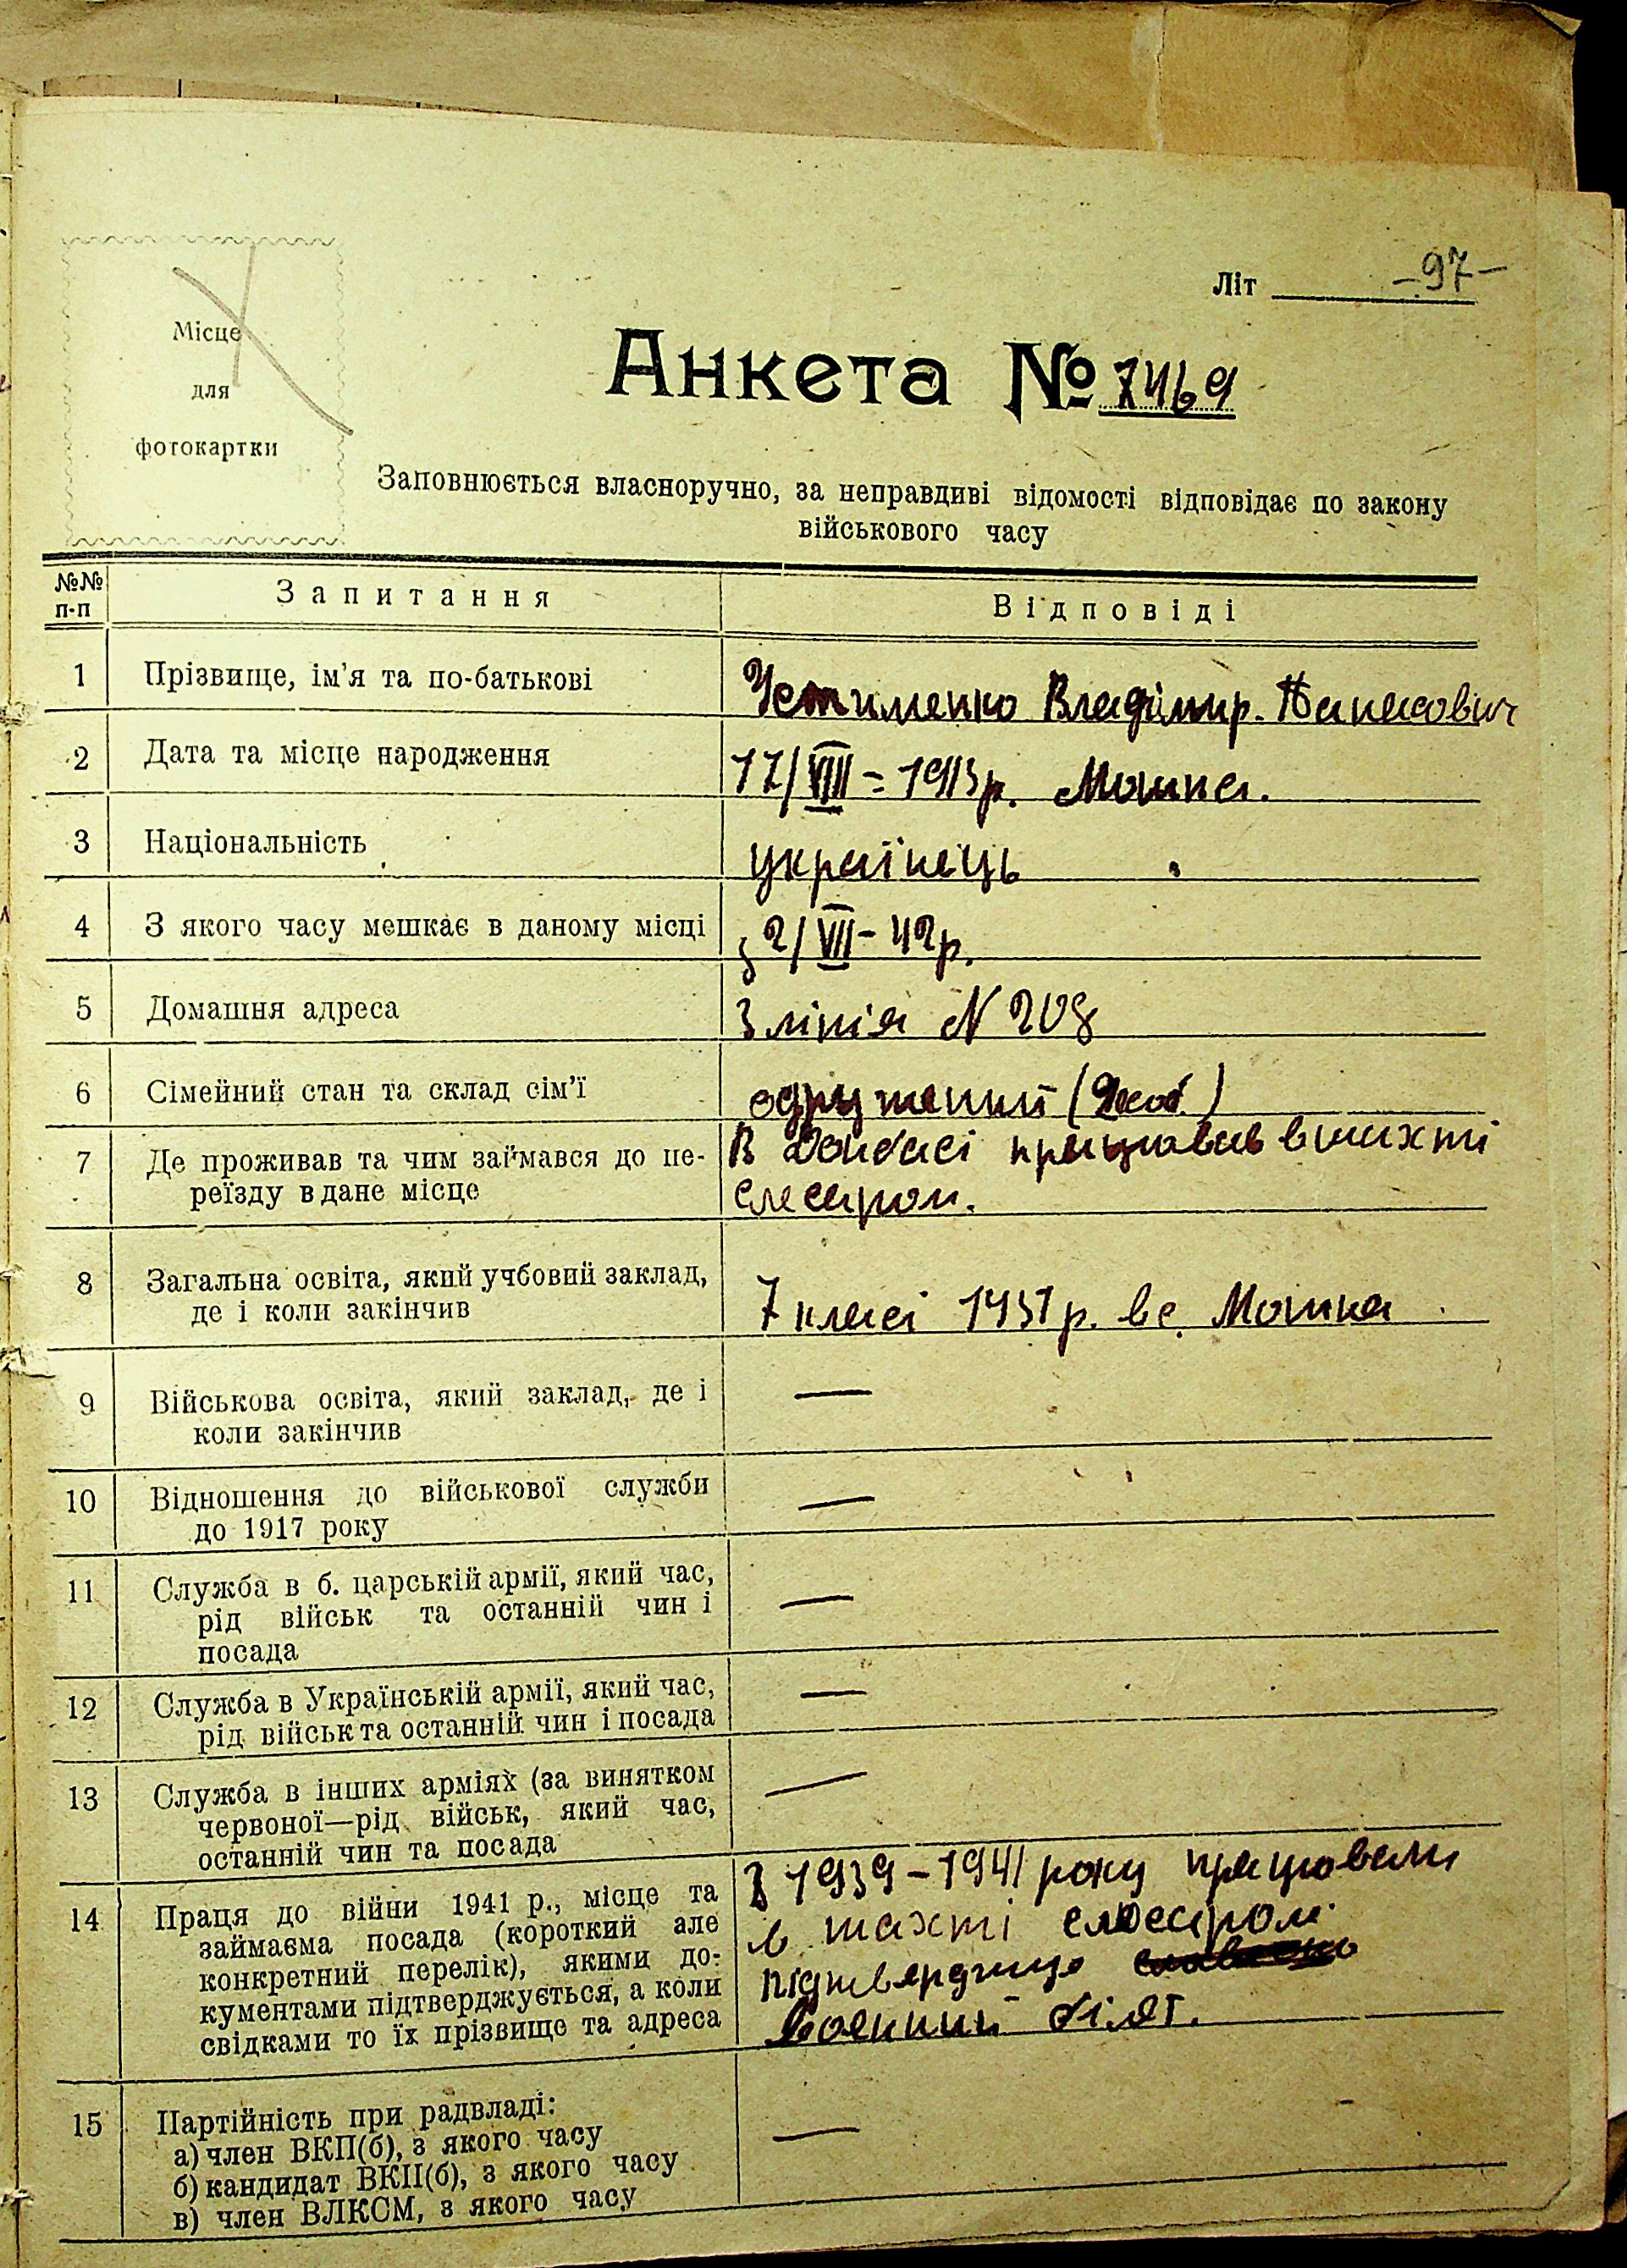 Місце
для
фотокартки
Літ -97-
Анкета № 7469
Заповнюється власноручно, за неправдиві відомості відповідає по закону
військового часу
№№ п-п Запитання Відповіді
1 Прізвище, ім'я та по-батькові Устименко Владімир. Панасович
2 Дата та місце народження 17/VIII = 1913 р. Мошна.
3 Національність українець
4 З якого часу мешкає в даному місці з 2/VII - 42 р.
5 Домашня адреса 3 лінія N 208
6 Сімейний стан та склад сім'ї одружений
7 Де проживав та чим займався до пе- В Донбасі працював в шахті
реїзду в дане місце слесаром.
8 Загальна освіта, який учбовий заклад,
де і коли закінчив 7 класі 1931 р. в с. Мошна
9 Військова освіта, який заклад, де і —
коли закінчив
10 Відношення до військової служби —
до 1917 року
11 Служба в б. царській армії, який час, —
рід військ та останній чин і
посада
12 Служба в Українській армії, який час, —
рід військ та останній чин і посада
13 Служба в інших арміях (за винятком —
червоної—рід військ, який час,
останній чин та посада
З 1939 - 1941 року працював
14 Праця до війни 1941 р., місце та в шахті слюсаром
займаєма посада (короткий але
конкретний перелік), якими до-
кументами підтверджується, а коли
свідками то їх прізвище та адреса Воєнний білєт.
15 Партійність при радвладі: —
а) член ВКП(б), з якого часу
б) кандидат ВКП(б), з якого часу
в) член ВЛКСМ, з якого часу